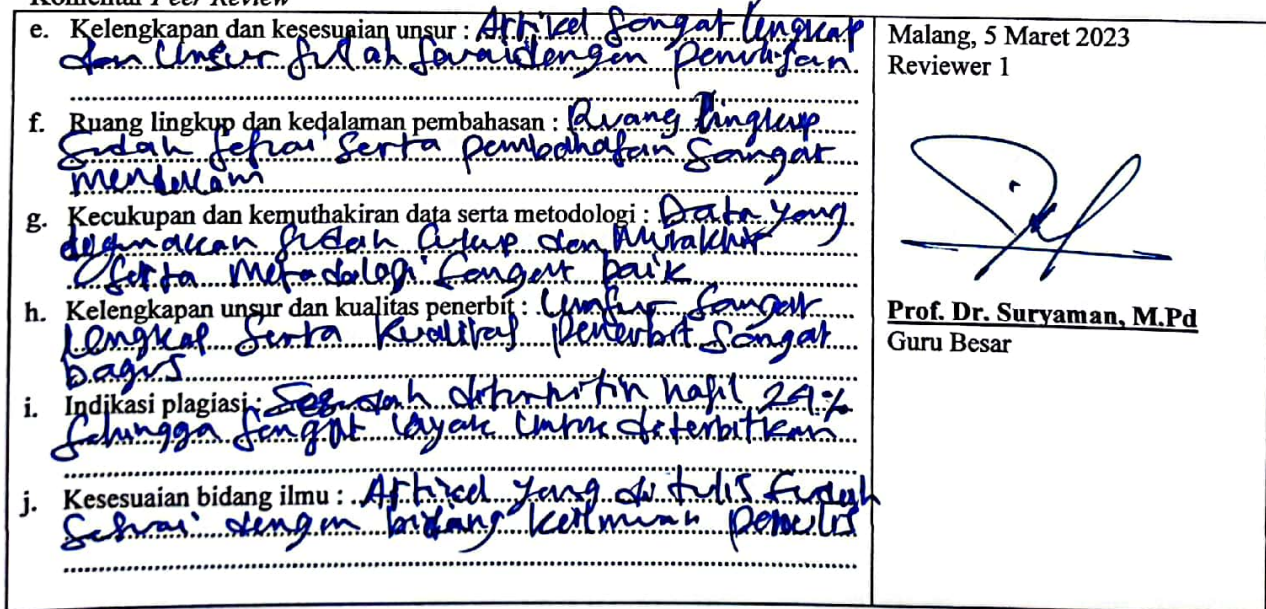 Komentar Peer Review
e. Kelengkapan dan kesesuaian unsur : Artikel sangat lengkap
dan unsur sudah sesuai dengan penulisan
f. Ruang lingkup dan kedalaman pembahasan : Ruang lingkup
sudah sesuai serta pembahasan sangat
mendalam
g. Kecukupan dan kemuthakiran data serta metodologi : Data yang
digunakan sudah cukup dan mutakhir
serta metodologi sangat baik
h. Kelengkapan unsur dan kualitas penerbit : Unsur sangat
lengkap serta kualitas penerbit sangat
bagus
i. Indikasi plagiasi : Sesudah diturnitin hasil 24%
sehingga sangat layak untuk diterbitkan
j. Kesesuaian bidang ilmu : Artikel yang di tulis sudah
sesuai dengan bidang keilmuan penulis
Malang, 5 Maret 2023
Reviewer 1
Prof. Dr. Suryaman, M.Pd
Guru Besar